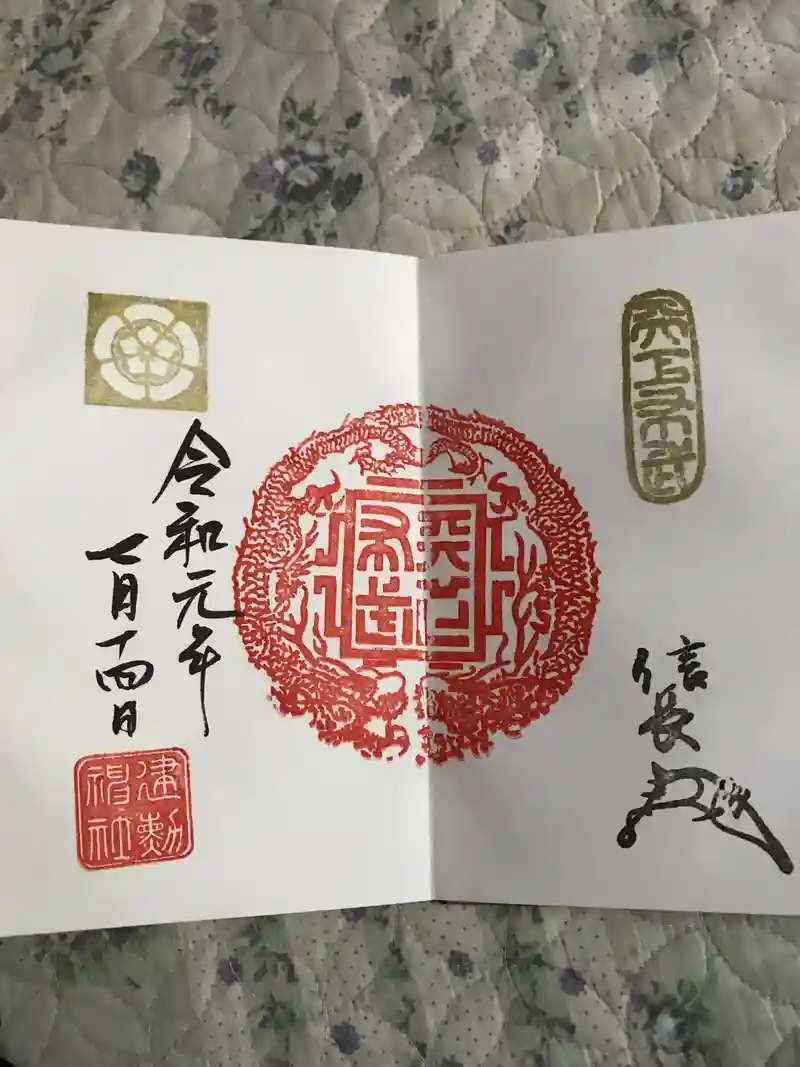 天下布武
信長
天下布武
令和元年
七月十四日
建勲
神社